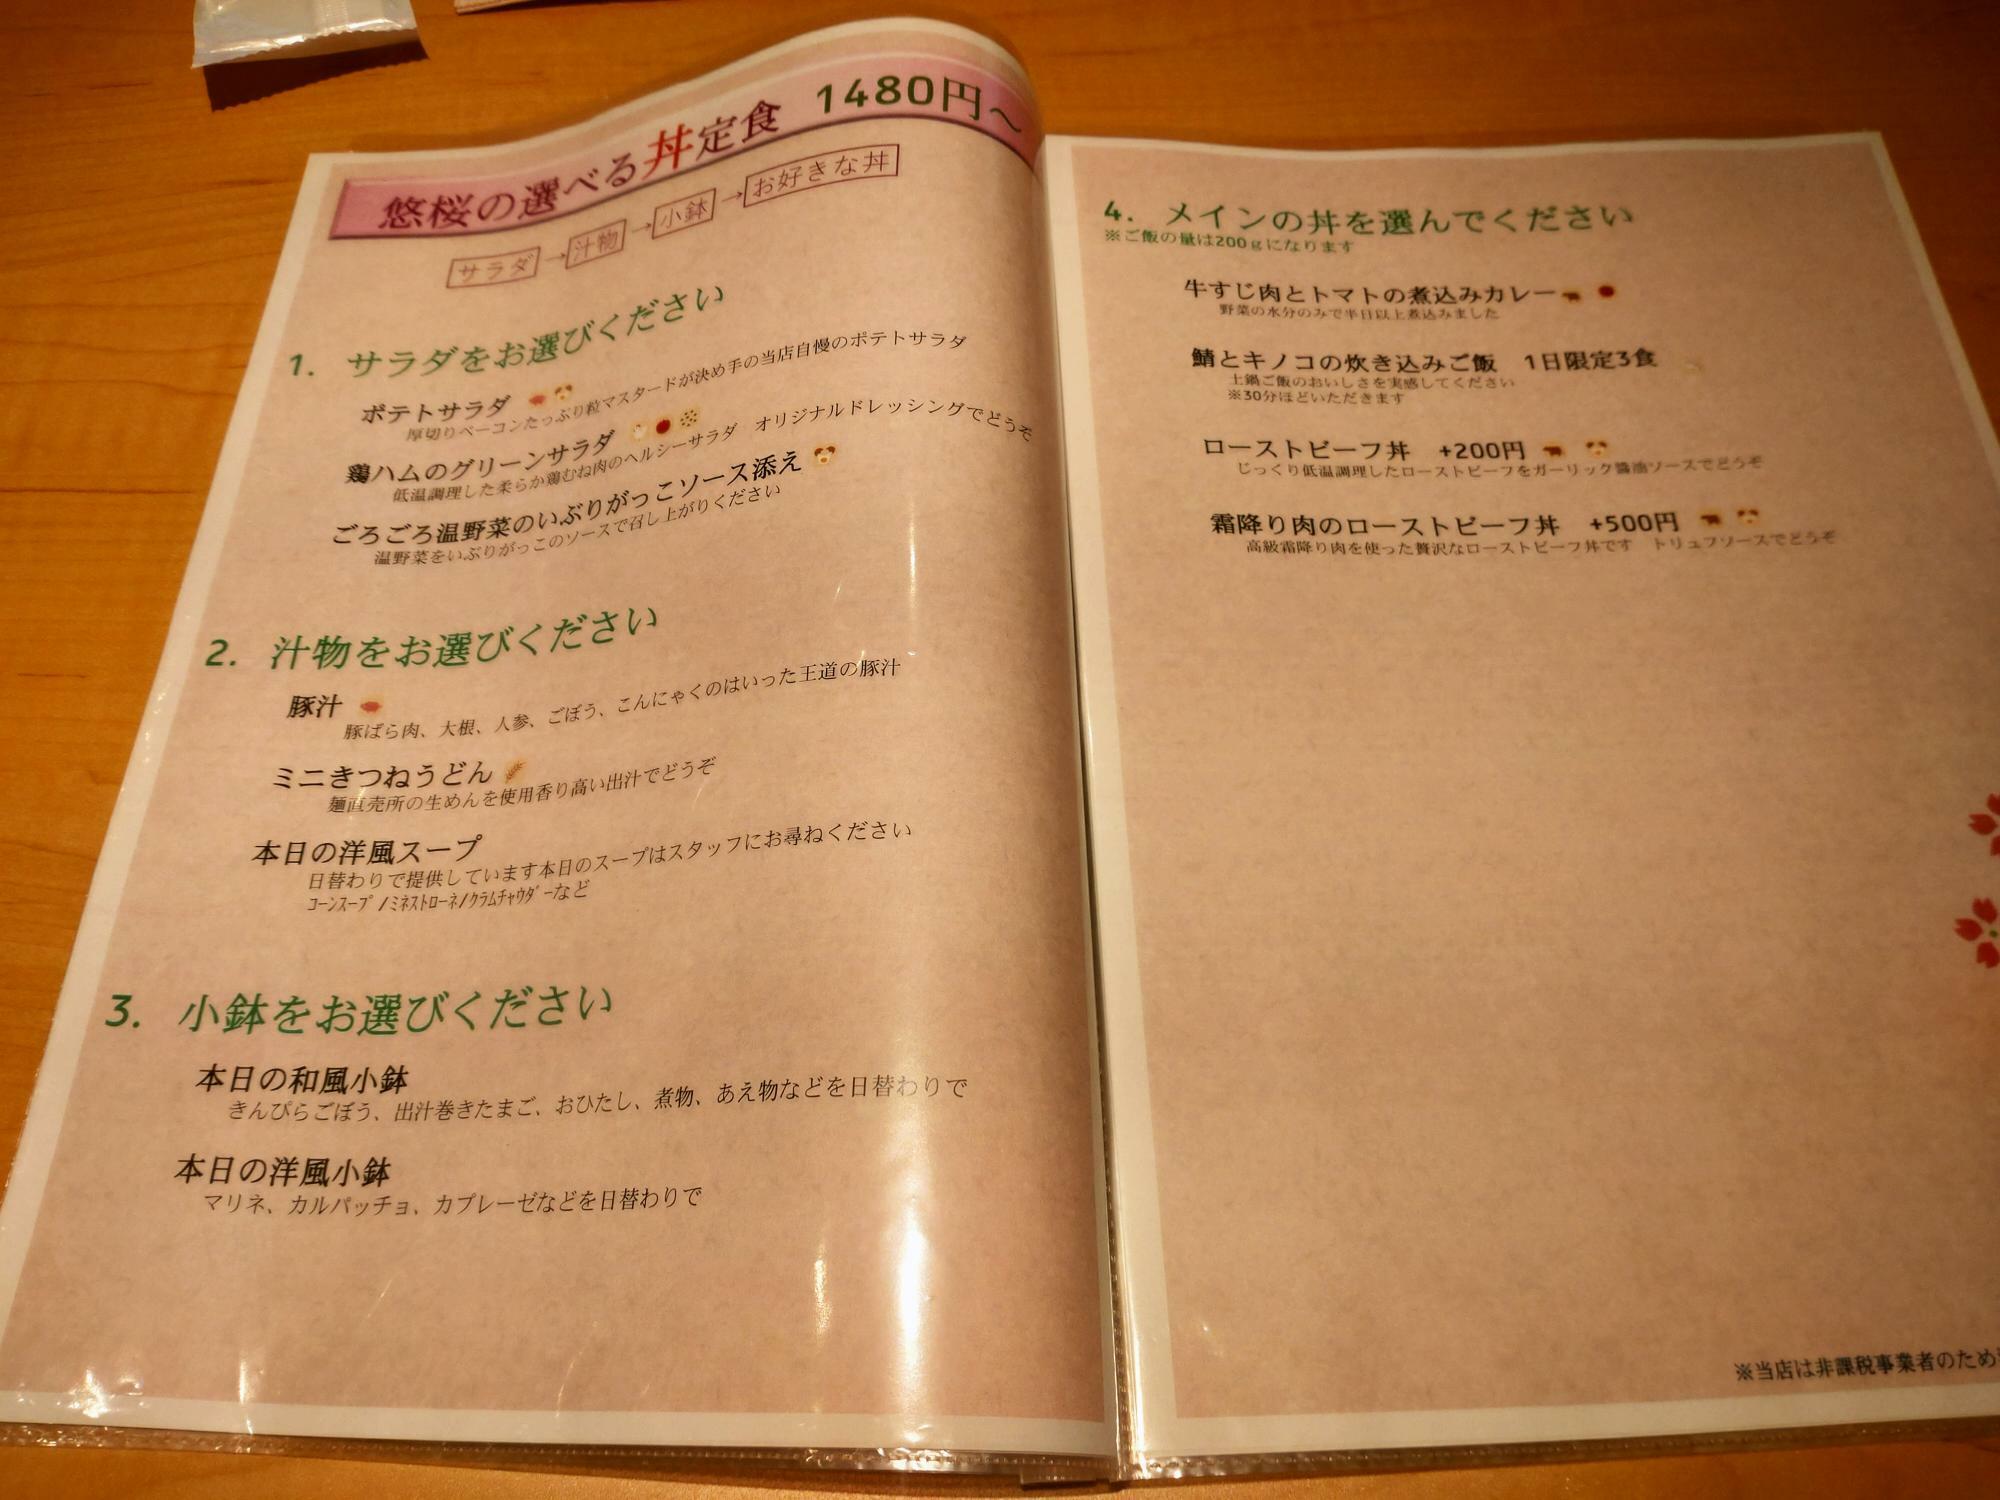 悠桜の選べる丼定食　1480円～
サラダ→汁物→小鉢→お好きな丼
1.　サラダをお選びください
ポテトサラダ
厚切りベーコンたっぷり粒マスタードが決め手の当店自慢のポテトサラダ
鶏ハムのグリーンサラダ
低温調理した柔らか鶏むね肉のヘルシーサラダ　オリジナルドレッシングでどうぞ
ごろごろ温野菜のいぶりがっこソース添え
温野菜をいぶりがっこのソースで召し上がりください
2.　汁物をお選びください
豚汁
豚ばら肉、大根、人参、ごぼう、こんにゃくのはいった王道の豚汁
ミニきつねうどん
麺直売所の生めんを使用香り高い出汁でどうぞ
本日の洋風スープ
日替わりで提供しています本日のスープはスタッフにお尋ねください
ｺｰﾝｽｰﾌﾟ/ﾐﾈｽﾄﾛｰﾈ/ｸﾗﾑﾁｬｳﾀﾞｰなど
3.　小鉢をお選びください
本日の和風小鉢
きんぴらごぼう、出汁巻きたまご、おひたし、煮物、あえ物などを日替わりで
本日の洋風小鉢
マリネ、カルパッチョ、カプレーゼなどを日替わりで
4.　メインの丼を選んでください
※ご飯の量は200ｇになります
牛すじ肉とトマトの煮込みカレー
野菜の水分のみで半日以上煮込みました
鯖とキノコの炊き込みご飯　1日限定3食
土鍋ご飯のおいしさを実感してください
※30分ほどいただきます
ローストビーフ丼　+200円
じっくり低温調理したローストビーフをガーリック醤油ソースでどうぞ
霜降り肉のローストビーフ丼　+500円
高級霜降り肉を使った贅沢なローストビーフ丼です　トリュフソースでどうぞ
※当店は非課税事業者のため